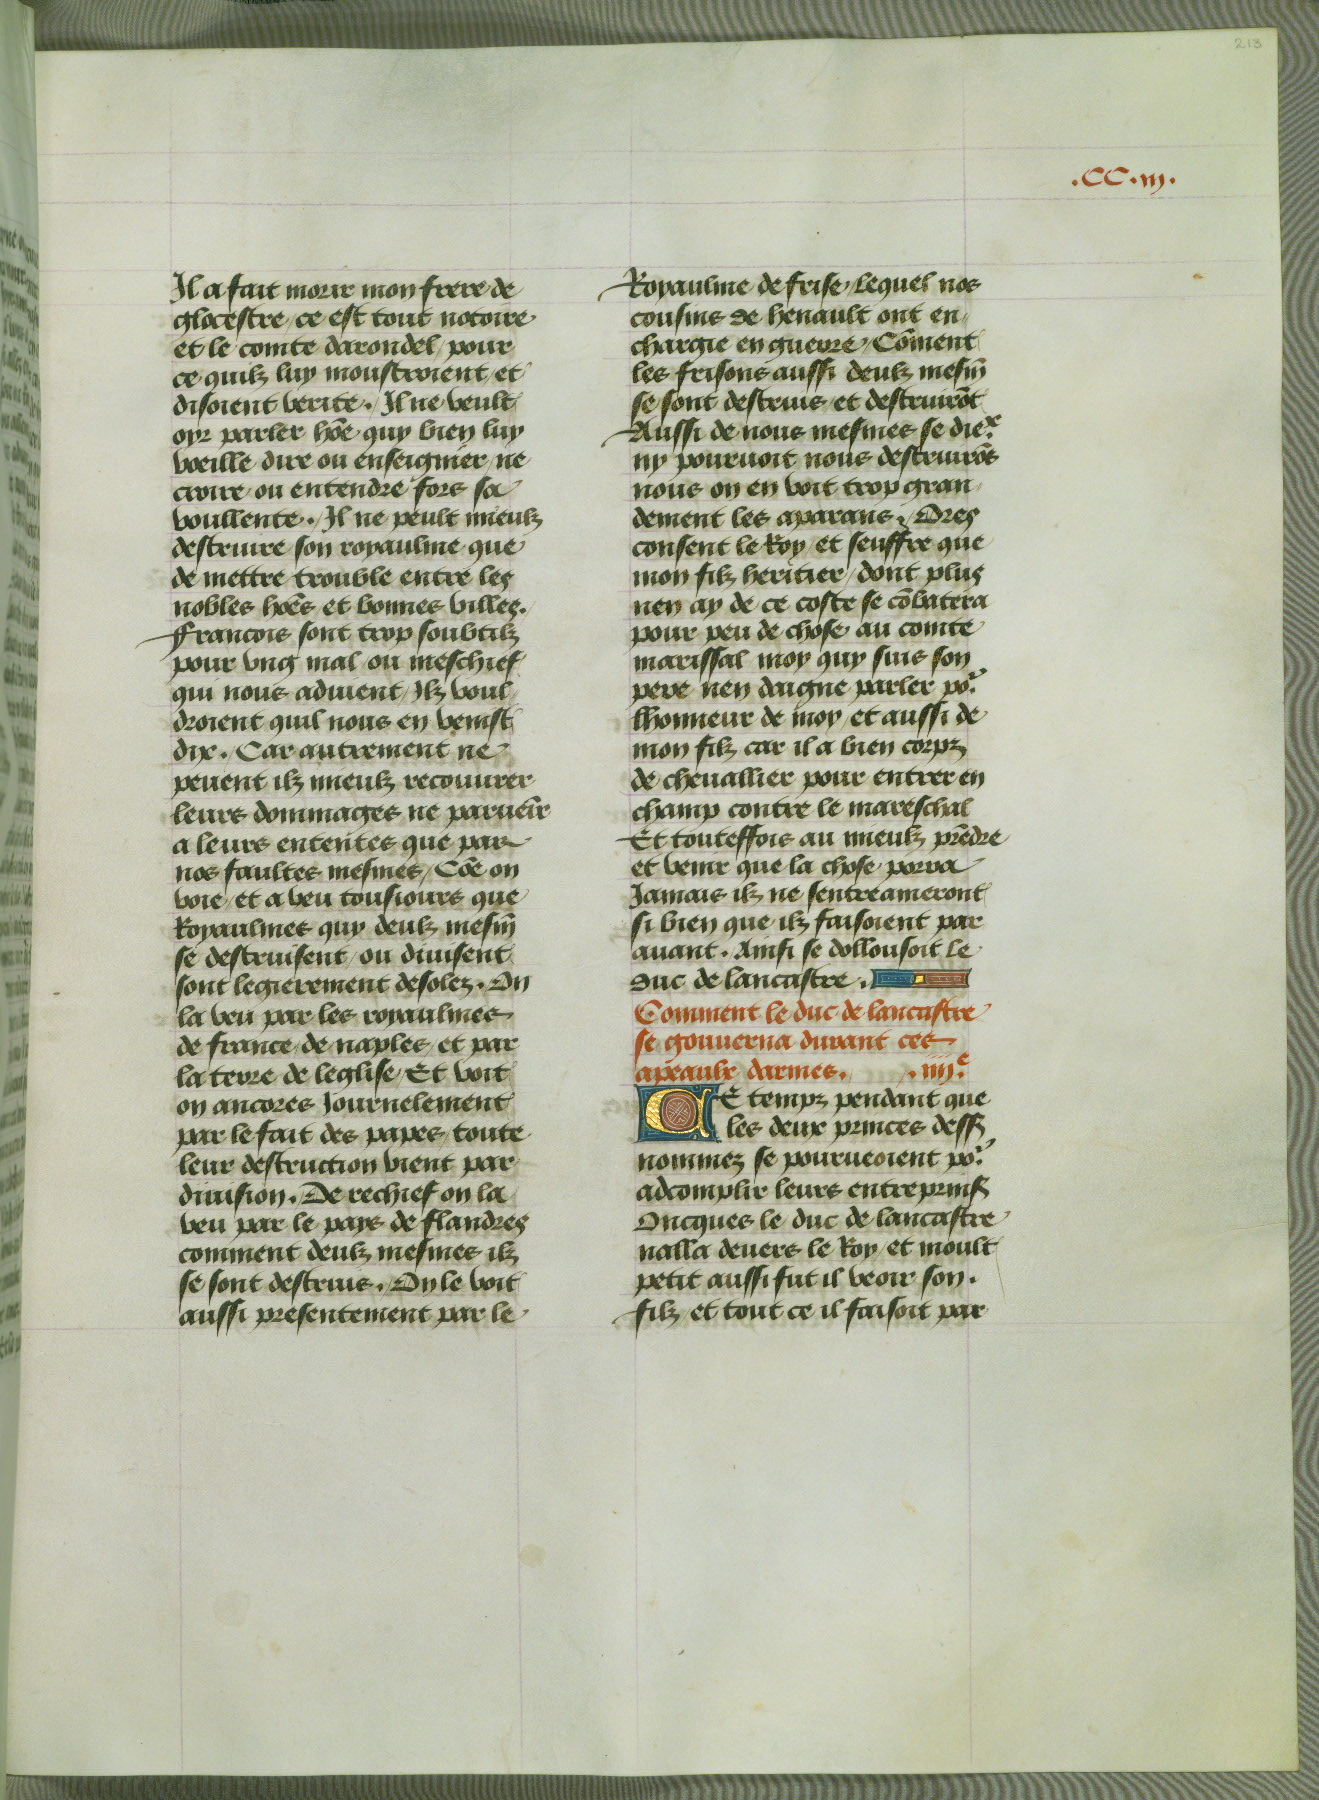 213
.CC.iij.
Il a fait morir mon frere de
glocestre / ce est tout notoire
et le comte darondel / pour
ce quilz luy moustroient / et
disoient verite. Il ne veult
oyr parler hõe quy bien luy
voeille dire ou enseignier / ne
croire ou entendre fors sa
voullente. Il ne peult mieulz
destruire son royaulme que
de mettre trouble entre les
nobles hões et bonnes villes.
Francois sont trop soubtilz
pour vng mal ou meschief
qui nous aduient / Ilz voul
droient quil nous en venist
dix. Car autrement ne
peuent ilz mieulz recouurer
leurs dommages ne parueir̃
a leurs ententes que par
nos faultes mesmes / Cõe on
voie / et a veu tousiours que
Royaulmes quy deulz mesm̃
se destruisent / ou diuisent
sont legierement desolez. On
la veu par les royaulmes
de france / de naples / et par
la terre de leglise / Et voit
on ancores Journelement
par le fait des papes / toute
leur destruction vient par
diuision. De rechief on la
veu par le pays de flandres
comment deulz mesmes ilz
se sont destruis. On le voit
aussi presentement par le
Royaulme de frise / lequel nos
cousins de henault ont en
chargie en guerre / Cõment
les frisons aussi deulz mesm̃
se sont destruis / et destruirõt
Aussi de nous mesmes se dieˣ.
ny pouruoit nous destruirõs
nous on en voit trop gran
dement les aparans. Ores
consent le Roy / et seuffre que
mon filz heritier / dont plus
nen ay de ce coste se cõbatera
pour peu de chose au comte
marissal moy quy suis son
pere nen daigne parler poʳ.
lhonneur de moy / et aussi de
mon filz car il a bien corpz
de cheuallier pour entrer en
champ contre le mareschal
Et touteffois au mieulz prẽdre
et venir que la chose porra
Jamais ilz ne sentreameront
si bien que ilz faisoient par
auant. Ainsi se dollousoit le
duc de lancastre.
Comment le duc de lancastre
se gouuerna durant ces
apeaulx darmes. .iiij.ᵉ
CE tempz pendant que
les deux princes dessz̃
nommez se pourueoient poʳ.
adcomplir leurs entreprinsz̃
Oncques le duc de lancastre
nalla deuers le Roy / et moult
petit aussi fut il veoir son.
filz / et tout ce il faisoit par